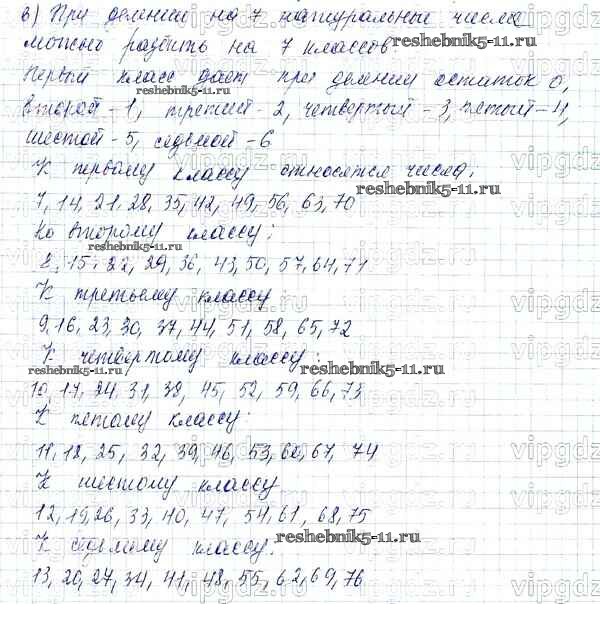 в) При делении на 7 натуральные числа
можно разбить на 7 классов.
reshebnik5-11.ru
Первый класс дает при делении остаток 0,
reshebnik5-11.ru
второй - 1, третий - 2, четвертый - 3, пятый - 4,
шестой - 5, седьмой - 6
vipgdz.ru
К первому классу относятся числа:
reshebnik5-11.ru
7, 14, 21, 28, 35, 42, 49, 56, 63, 70
Ко второму классу:
reshebnik5-11.ru
8, 15, 22, 29, 36, 43, 50, 57, 64, 71
К третьему классу
vipgdz.ru
9, 16, 23, 30, 37, 44, 51, 58, 65, 72
К четвертому классу:
reshebnik5-11.ru
reshebnik5-11.ru
10, 17, 24, 31, 38, 45, 52, 59, 66, 73
К пятому классу:
11, 18, 25, 32, 39, 46, 53, 60, 67, 74
vipgdz.ru
К шестому классу
12, 19, 26, 33, 40, 47, 54, 61, 68, 75
К седьмому классу:
reshebnik5-11.ru
13, 20, 27, 34, 41, 48, 55, 62, 69, 76
vipgdz.ru